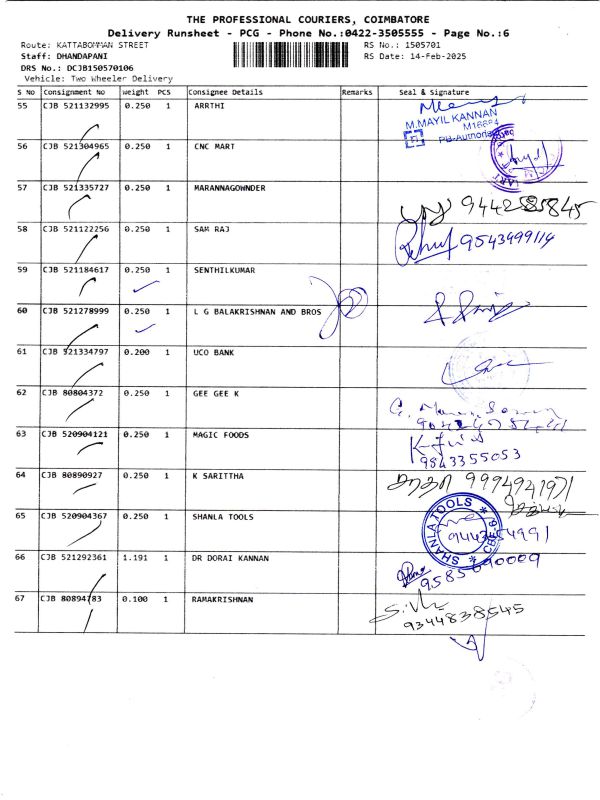 THE PROFESSIONAL COURIERS, COIMBATORE
Delivery Runsheet - PCG - Phone No.:0422-3505555 - Page No.:6
Route: KATTABOMMAN STREET RS No.: 1505701
Staff: DHANDAPANI RS Date: 14-Feb-2025
DRS No.: DCJB150570106
Vehicle: Two Wheeler Delivery
S No Consignment No Weight PCS Consignee Details Remarks Seal & Signature
55 CJB 521132995 0.250 1 ARRTHI
M.MAYIL KANNAN
M16884
56 CJB 521304965 0.250 1 CNC MART
57 CJB 521335727 0.250 1 MARANNAGOWNDER
58 CJB 521122256 0.250 1 SAM RAJ
9543999114
59 CJB 521184617 0.250 1 SENTHILKUMAR
60 CJB 521278999 0.250 1 L G BALAKRISHNAN AND BROS
61 CJB 521334797 0.200 1 UCO BANK
62 CJB 80804372 0.250 1 GEE GEE K
63 CJB 520904121 0.250 1 MAGIC FOODS
9843355053
64 CJB 80890927 0.250 1 K SARITTHA
9994941971
65 CJB 520904367 0.250 1 SHANLA TOOLS
SHANLA TOOLS
66 CJB 521292361 1.191 1 DR DORAI KANNAN
9585090009
67 CJB 80894783 0.100 1 RAMAKRISHNAN
9344838545